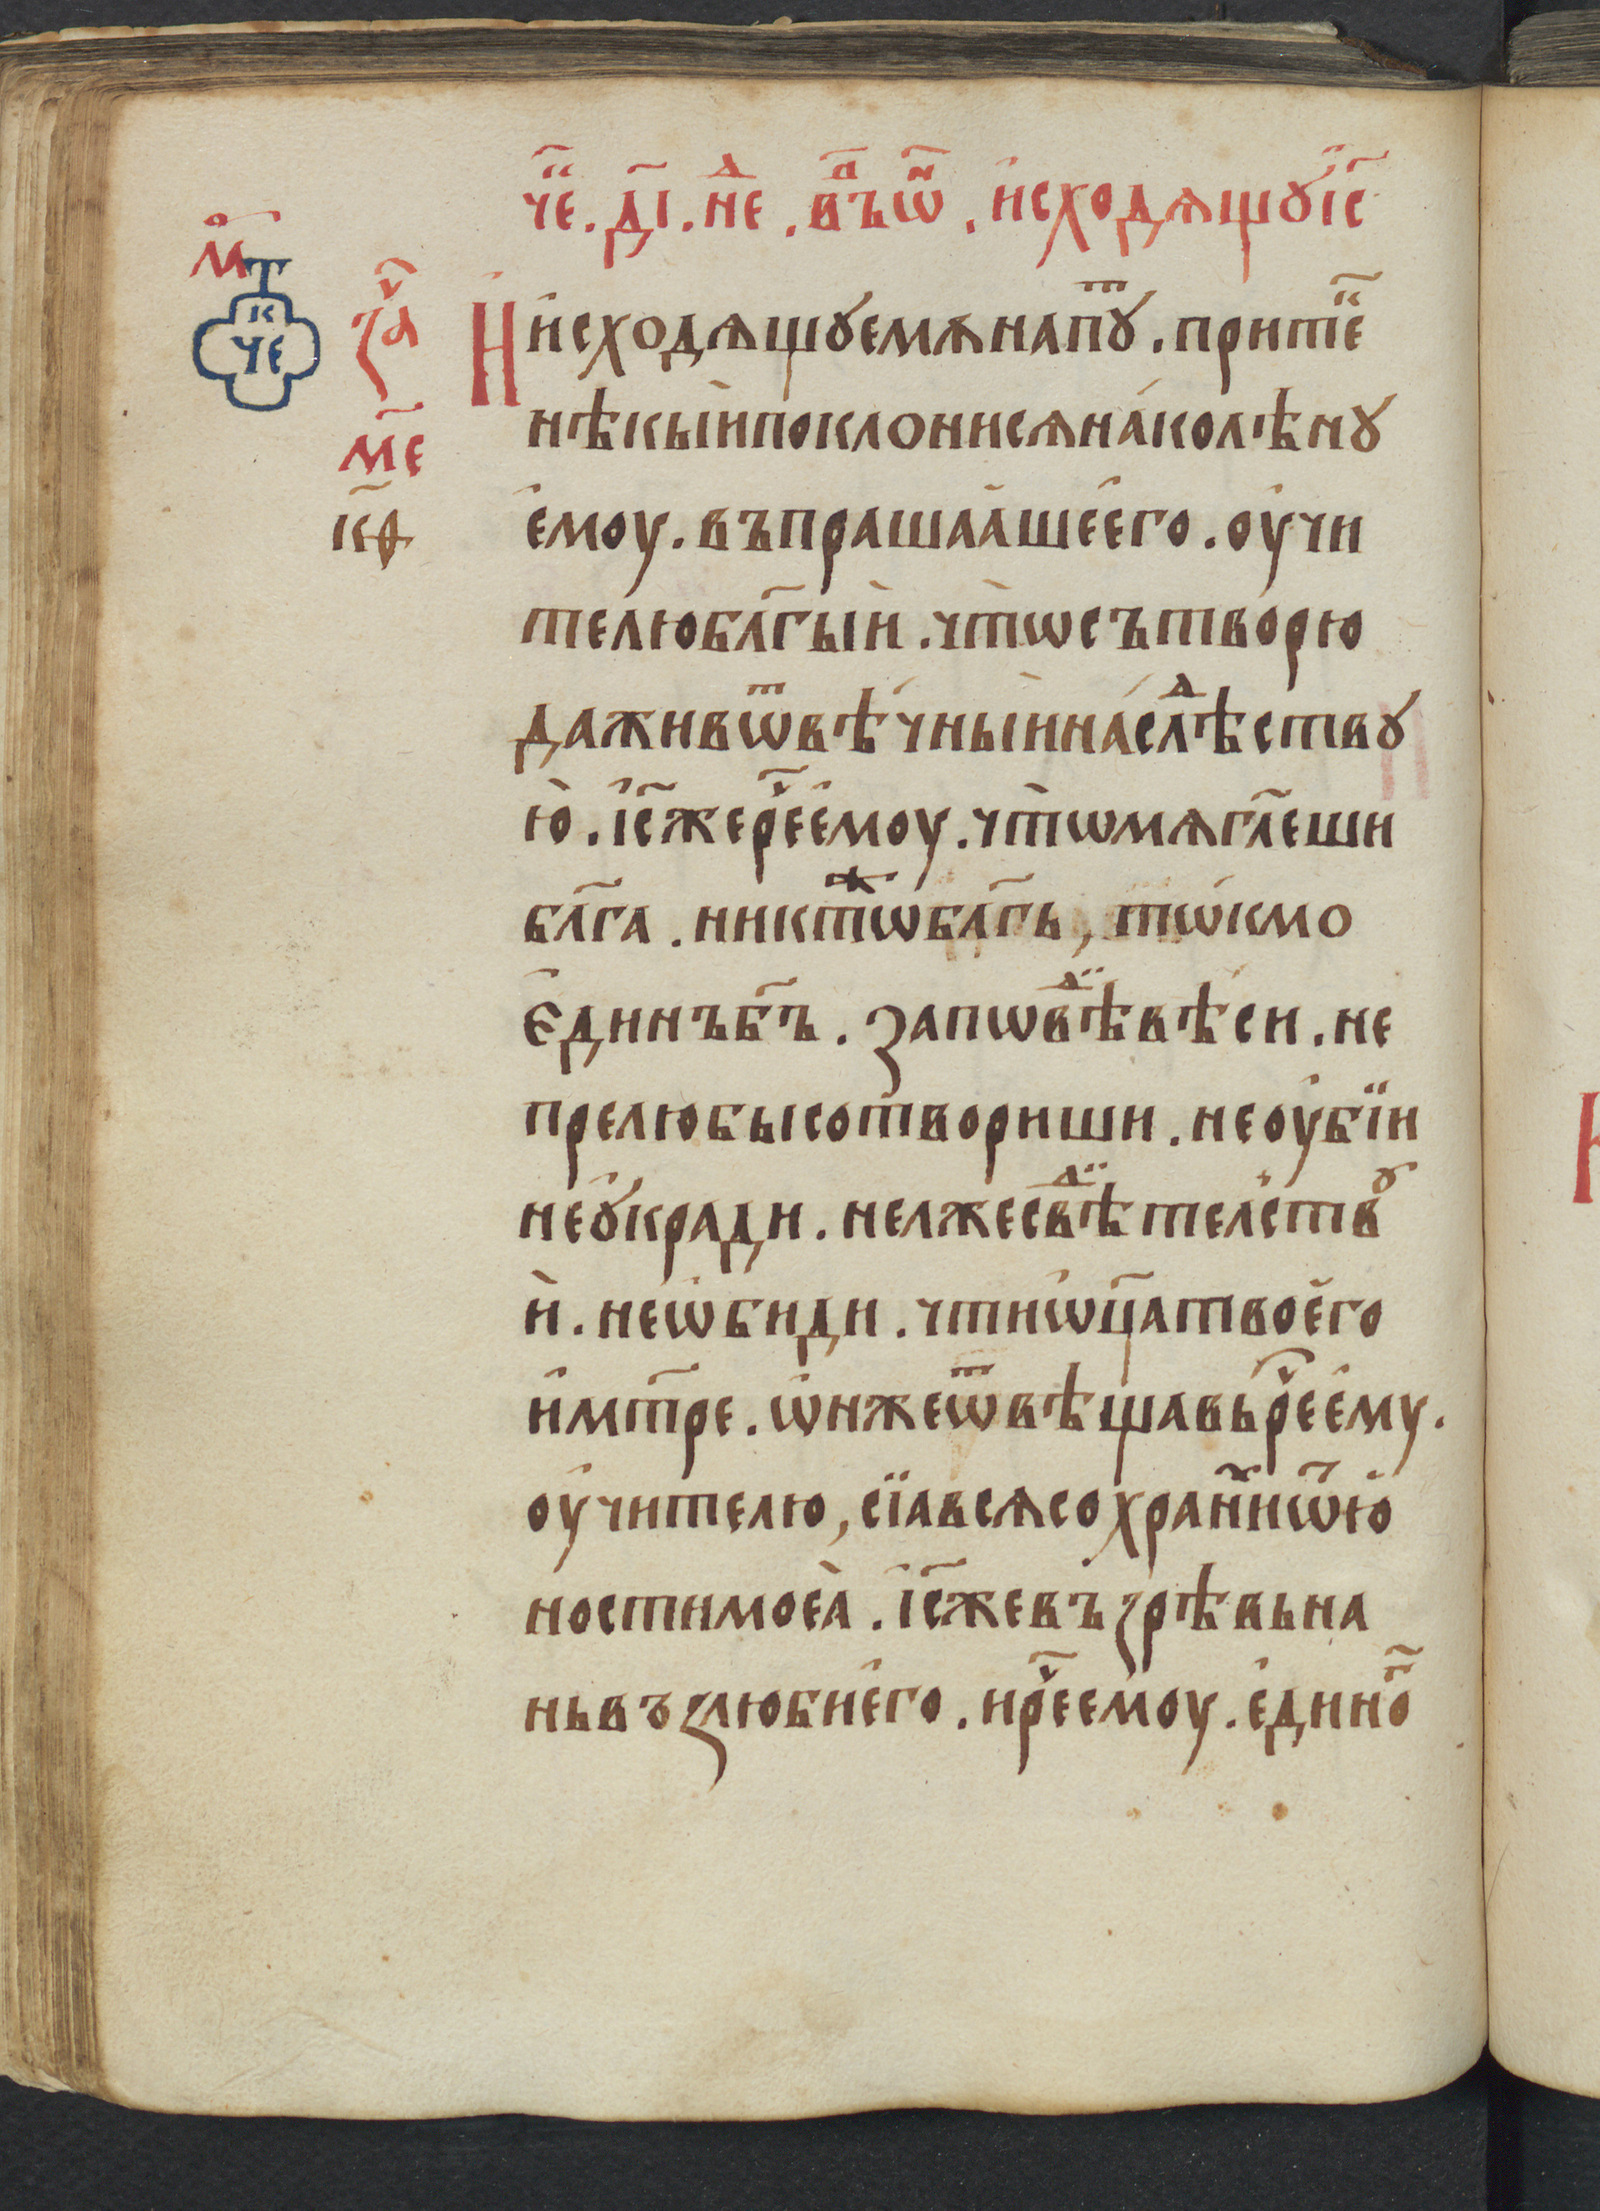 че҃. д҃і. нⷣе. въⷫѿ. исходѧщꙋі҃с
м҃
к
че
за҃
ме҃
кф
И исходѧщꙋемꙋ҆наⷫпꙋ. прите҃
нѣкыйипоклонисѧнаколѣнꙋ
емоу. въпрашаашеего. оучи
телюбл҃гый. чт̀ѡсътворю
даживѿвѣчныйнаслⷣѣствꙋ
ю. і҃сжерⷱ҇еемоу. чт̀ѡмѧгл҃еши
бл҃га. никтⷤѡбл҃гь, тѡкмо
Единъб҃ъ. заповⷣѣвѣси. не
прелюбысотвориши. неоубїи
неꙋкради. нелжесвⷣѣтелствꙋ
й. неѡбиди. чтиѡц҃атвоего
им҃тре. ѡнжеѿвѣщавьрⷱ҇еемꙋ.
оучителю, сїавсѧсохраниⷯѿю
ностимоеа. і҃сжевъзрѣвьна
ньвъзлюбиего. ирⷱ҇еемоу. единⷪ҇